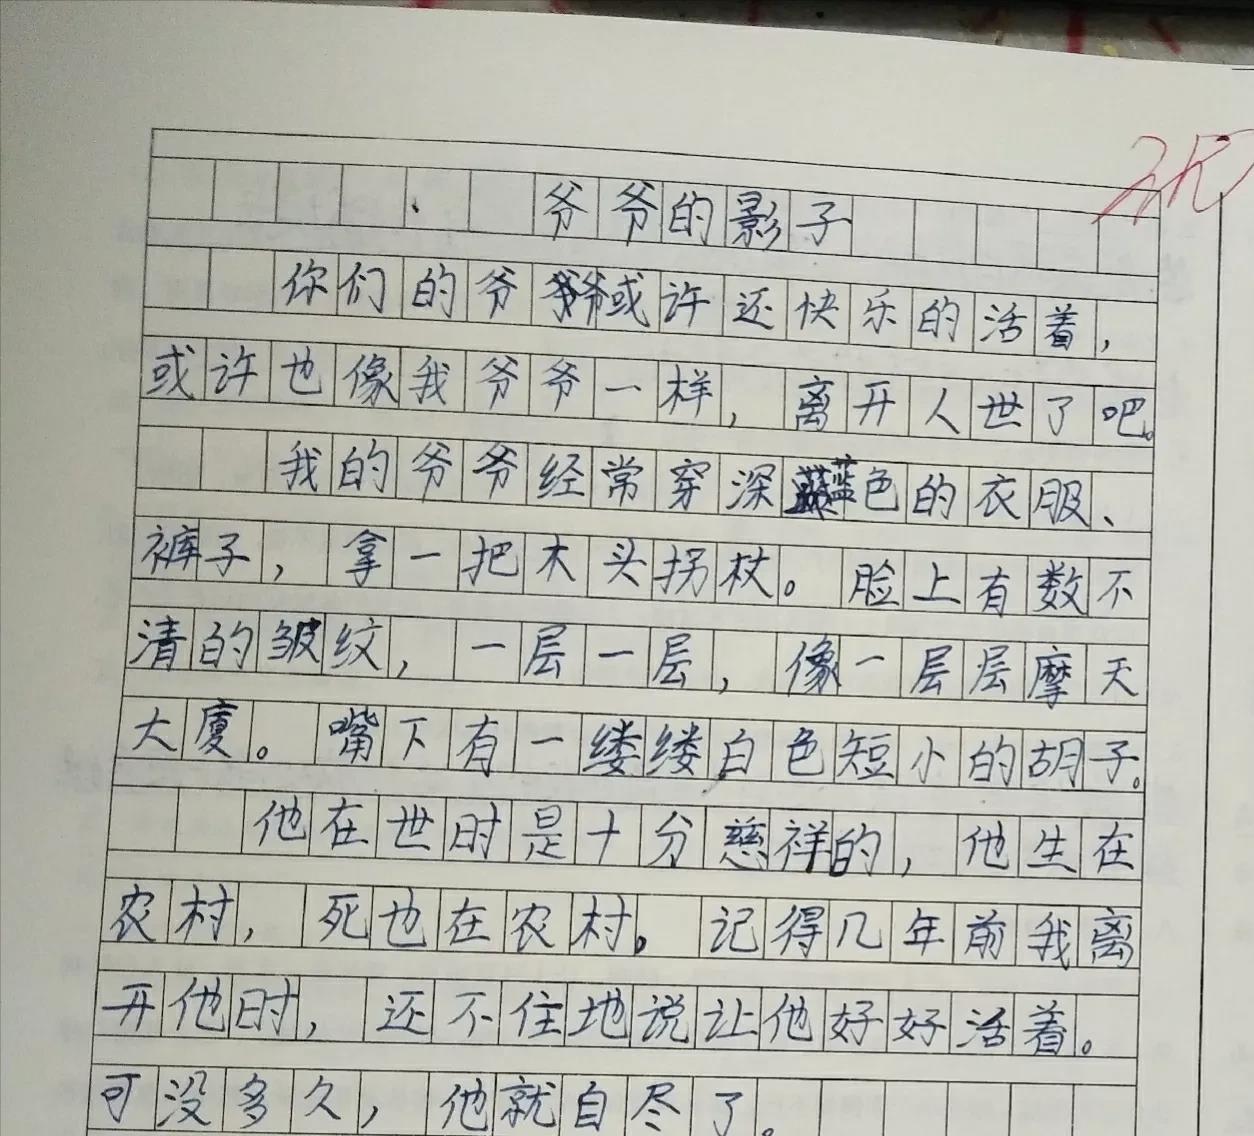 爷爷的影子
你们的爷爷或许还快乐的活着，
或许也像我爷爷一样，离开人世了吧。
我的爷爷经常穿深蓝色的衣服、
裤子，拿一把木头拐杖。脸上有数不
清的皱纹，一层一层，像一层层摩天
大厦。嘴下有一缕缕白色短小的胡子。
他在世时是十分慈祥的，他生在
农村，死也在农村。记得几年前我离
开他时，还不住地说让他好好活着。
可没多久，他就自尽了。